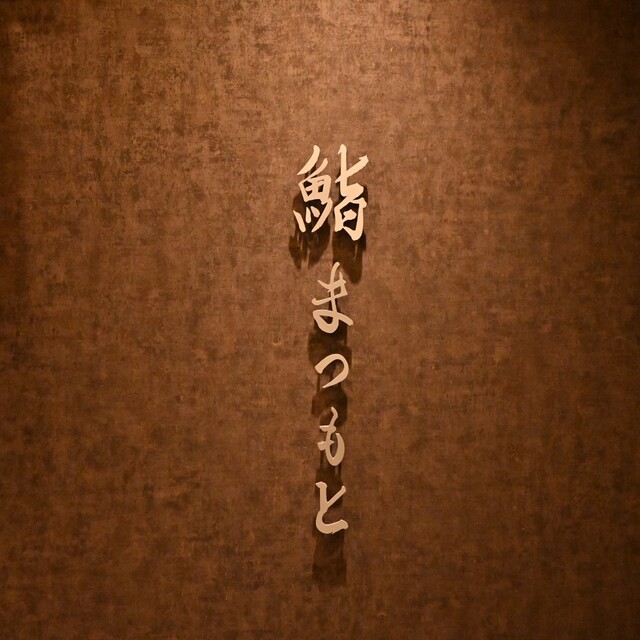 鮨まつもと